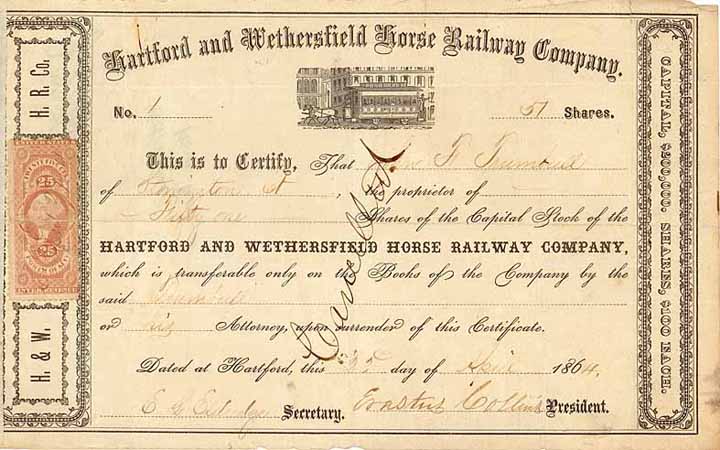 Hartford and Wethersfield Horse Railway Company.
No. 1 51 Shares.
This is to Certify, That Trumbull
of Stonington Ct, the proprietor of
Fifty one Shares of the Capital Stock of the
HARTFORD AND WETHERSFIELD HORSE RAILWAY COMPANY,
which is transferable only on the Books of the Company by the
said Trumbull
or his Attorney, upon surrender of this Certificate.
Dated at Hartford, this 25 day of 1864.
Secretary. Erastus Collins President.
Cancelled
H. & W. H. R. Co.
25 25
CAPITAL, $200,000. SHARES, $100 EACH.